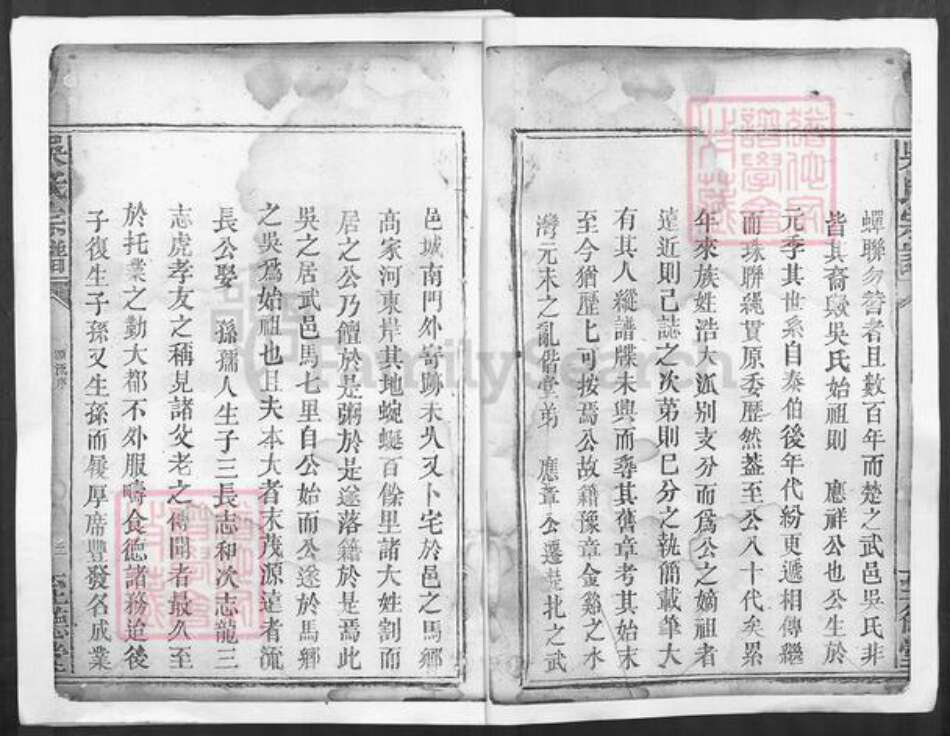 蟬聯勿替者且數百年而楚之武邑吳氏非
皆其裔歟吳氏始祖則 應祥公也公生於
元季其世系自泰伯後年代紛更遞相傳繼
而珠聯繩貫原委歷然葢至公八十代矣累
年來族姓浩大派別支分而爲公之嫡祖者
遠近則已誌之次第則巳分之執簡載筆大
有其人縱譜牒未興而尋其舊章考其始末
至今猶歷匕可按焉公故籍豫章金谿之水
灣元末之亂偕堂弟 應章公遷楚北之武
邑城南門外寄跡未久又卜宅於邑之馬鄉
高家河東岸其地蜿蜒百餘里諸大姓割而
居之公乃饘於是粥於是遂落籍於是焉此
吳之居武邑馬七里自公始而公遂於馬鄉
之吳爲始祖也且夫本大者末茂源遠者流
長公娶 孫孺人生子三長志和次志龍三
志虎孝友之稱見諸父老之傳聞者最久至
於托業之勤大都不外服疇食德諸務迨後
子復生子孫又生孫而履厚席豐發名成業
吳氏宗譜